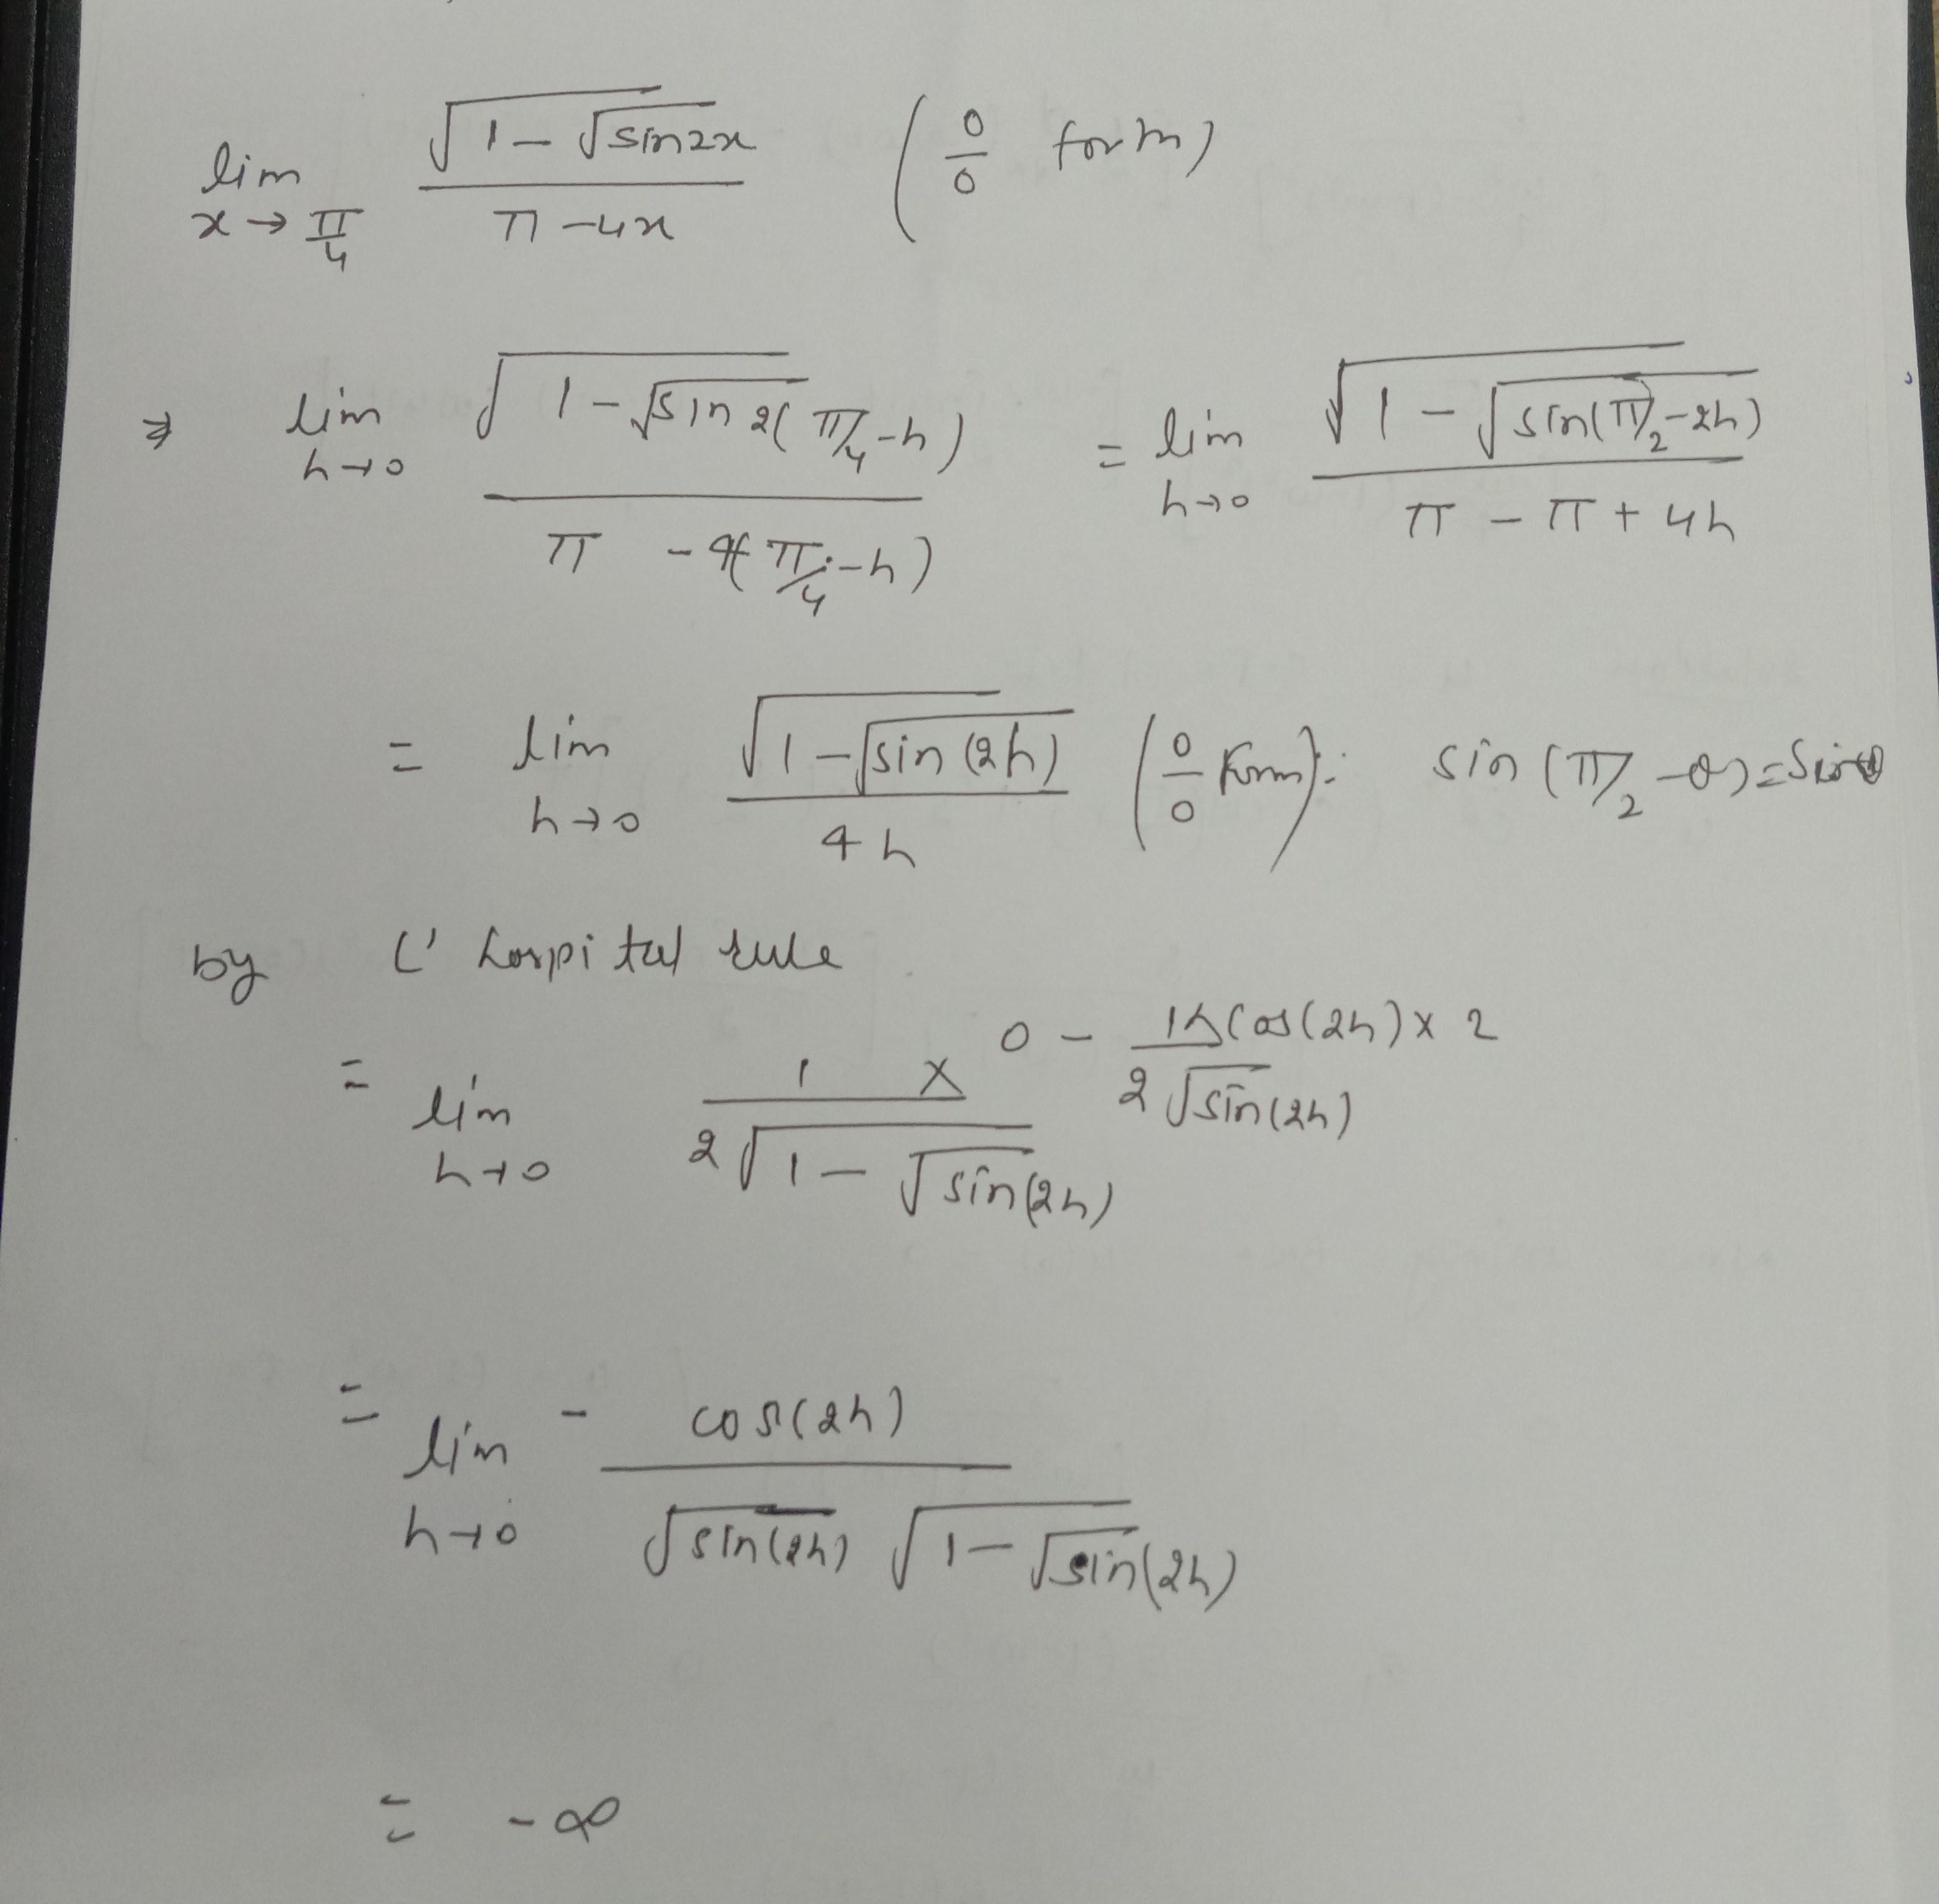 lim x→π/4 √(1-√sin2x) / (π-4x) (0/0 form)
⇒ lim h→0 √(1-√sin2(π/4-h)) / (π-4(π/4-h)) = lim h→0 √(1-√sin(π/2-2h)) / (π-π+4h)
= lim h→0 √(1-√sin(2h)) / 4h (0/0 form): sin(π/2-θ)=sinθ
by L' hospital rule
= lim h→0 1/(2√(1-√sin(2h))) × 0 - cos(2h)×2 / (2√sin(2h))
= lim h→0 - cos(2h) / (√sin(2h) √(1-√sin(2h)))
= -∞